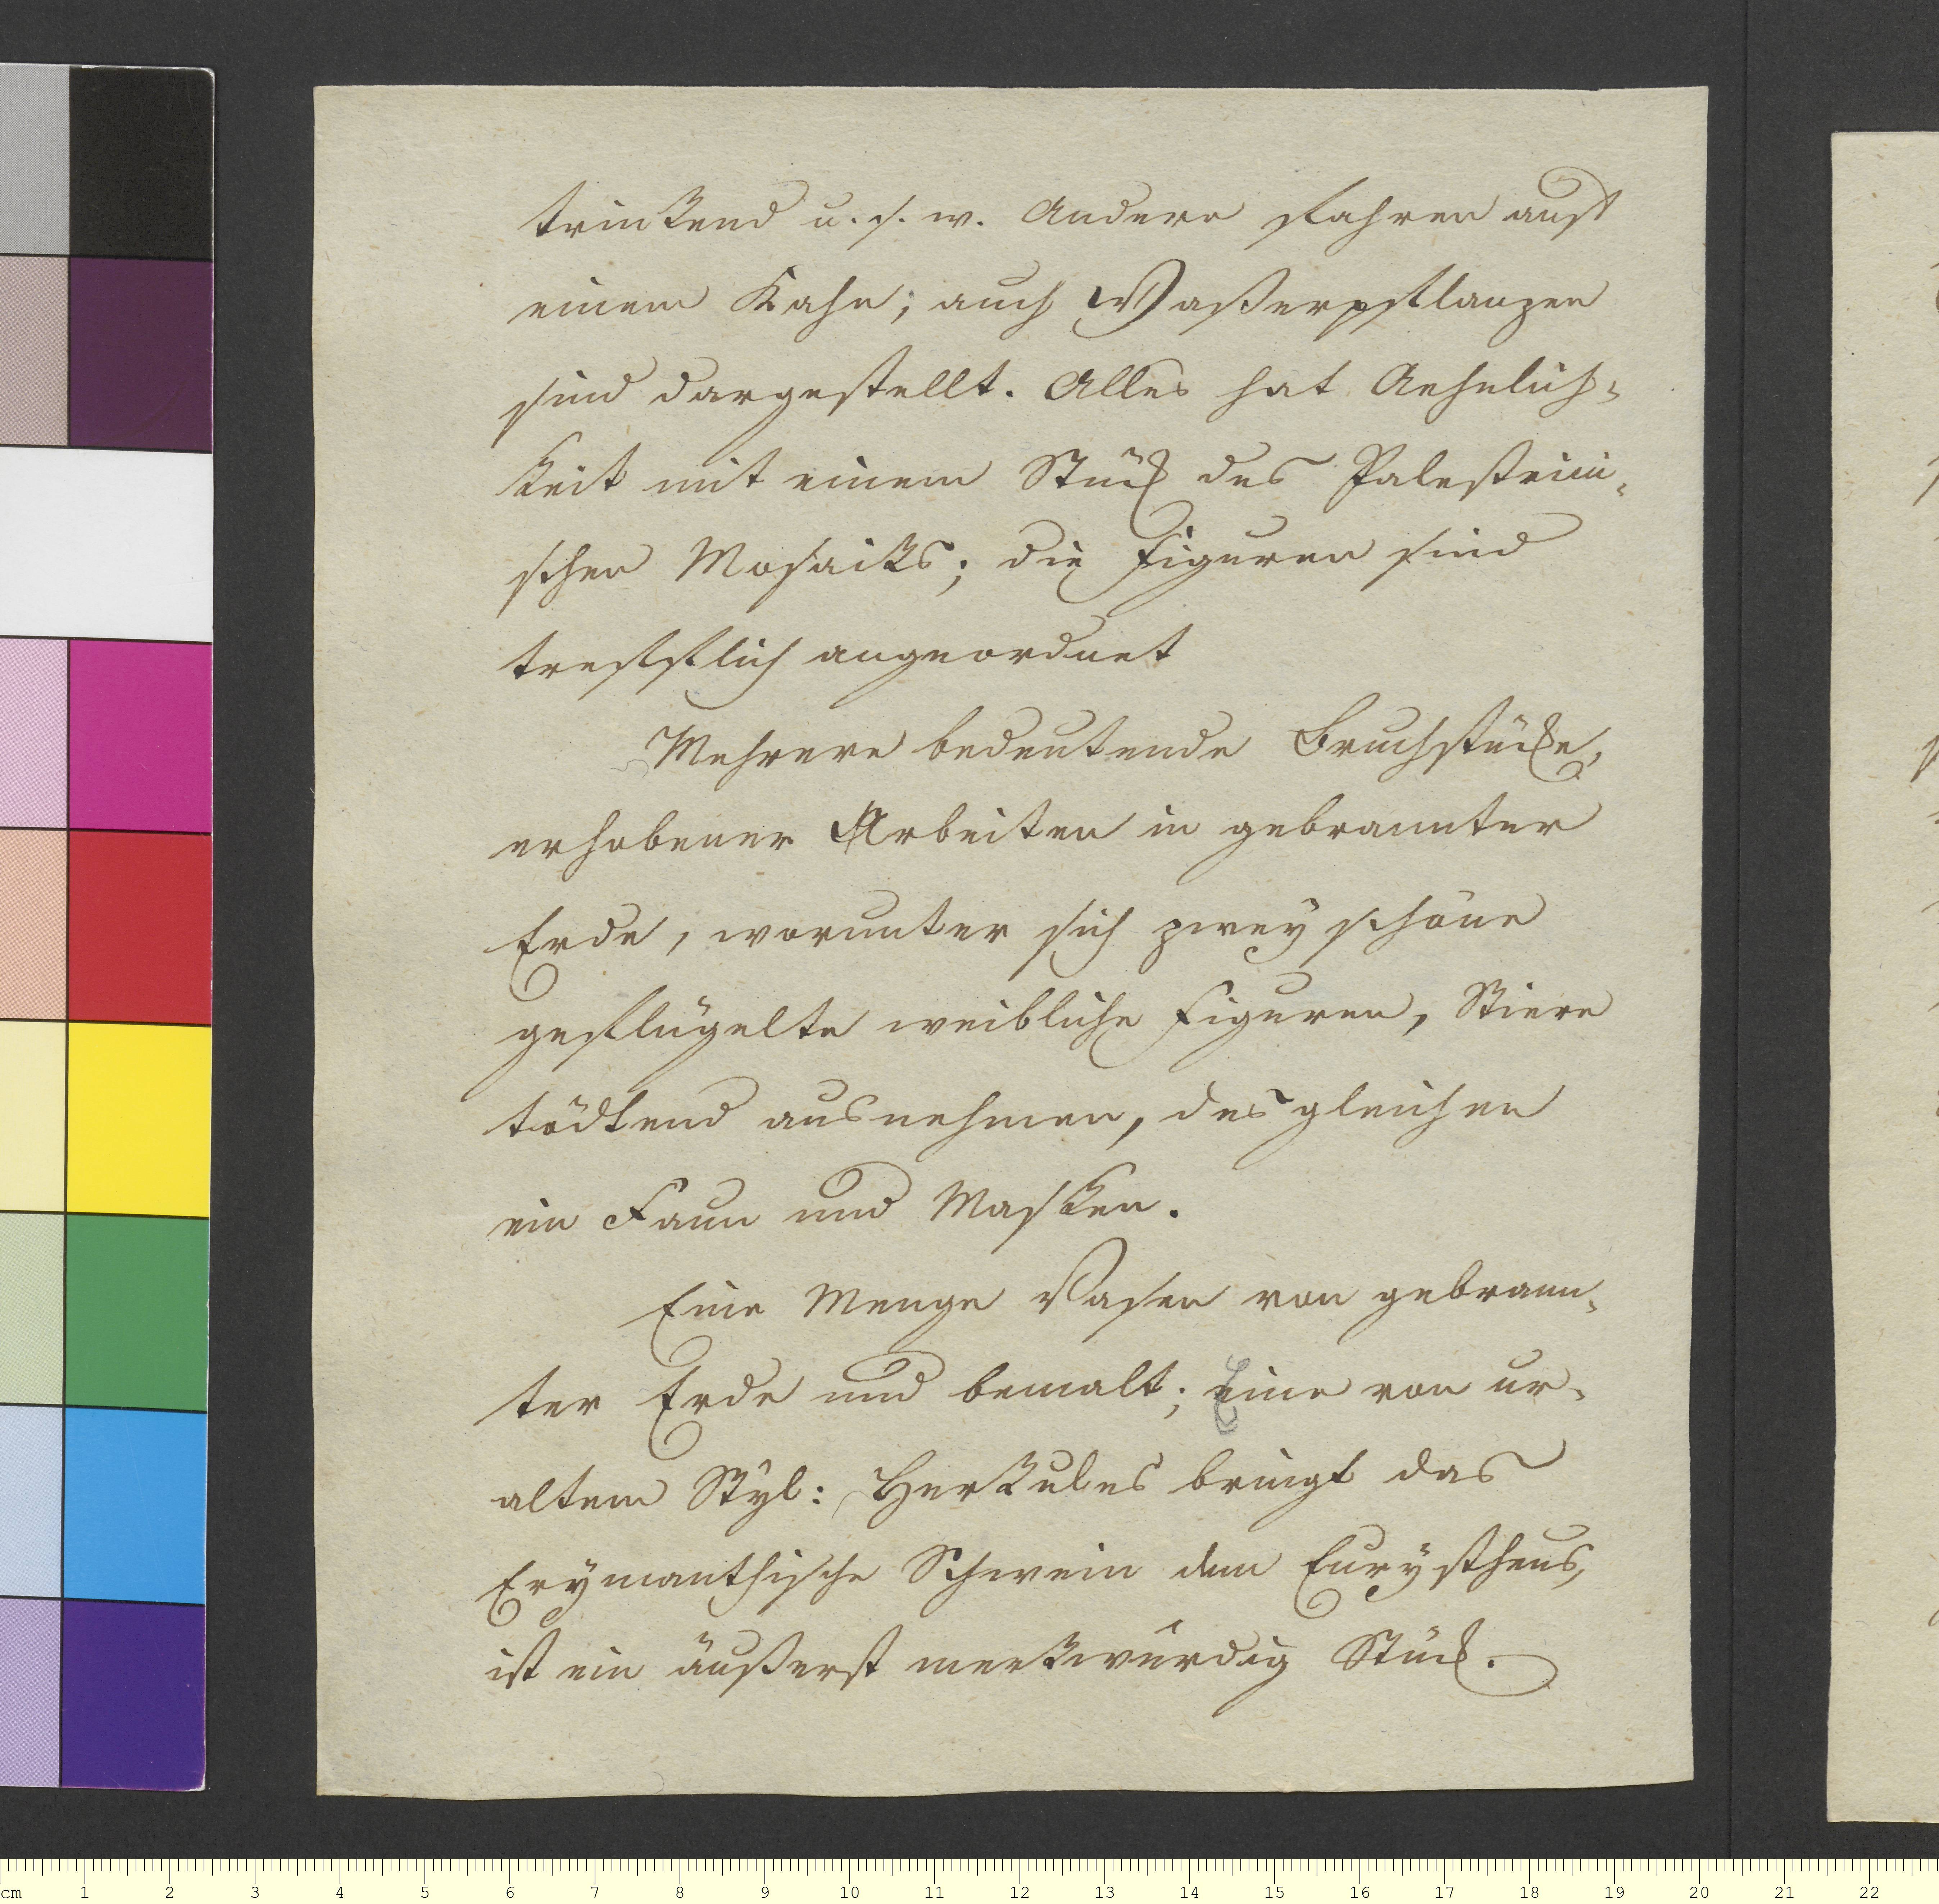 trinkend u. s. w. Andere fahren auf
einem Kahn; auch Waßerpflanzen
sind dargestellt. Alles hat Aehnlich-
keit mit einem Stück des Palestrini-
schen Mosaiks; die Figuren sind
trefflich angeordnet
Mehrere bedeutende Bruchstücke,
erhobener Arbeiten in gebrannter
Erde, worunter sich zwey schöne
geflügelte weibliche Figuren, Stiere
tödtend ausnehmen, desgleichen
ein Faun und Masken.
Eine Menge Vasen von gebrann-
ter Erde und bemalt; Eine von ur-
altem Styl: Herkules bringt das
Erymanthische Schwein dem Eurystheus,
ist ein äußerst merkwürdig Stück.
cm 1 2 3 4 5 6 7 8 9 10 11 12 13 14 15 16 17 18 19 20 21 22